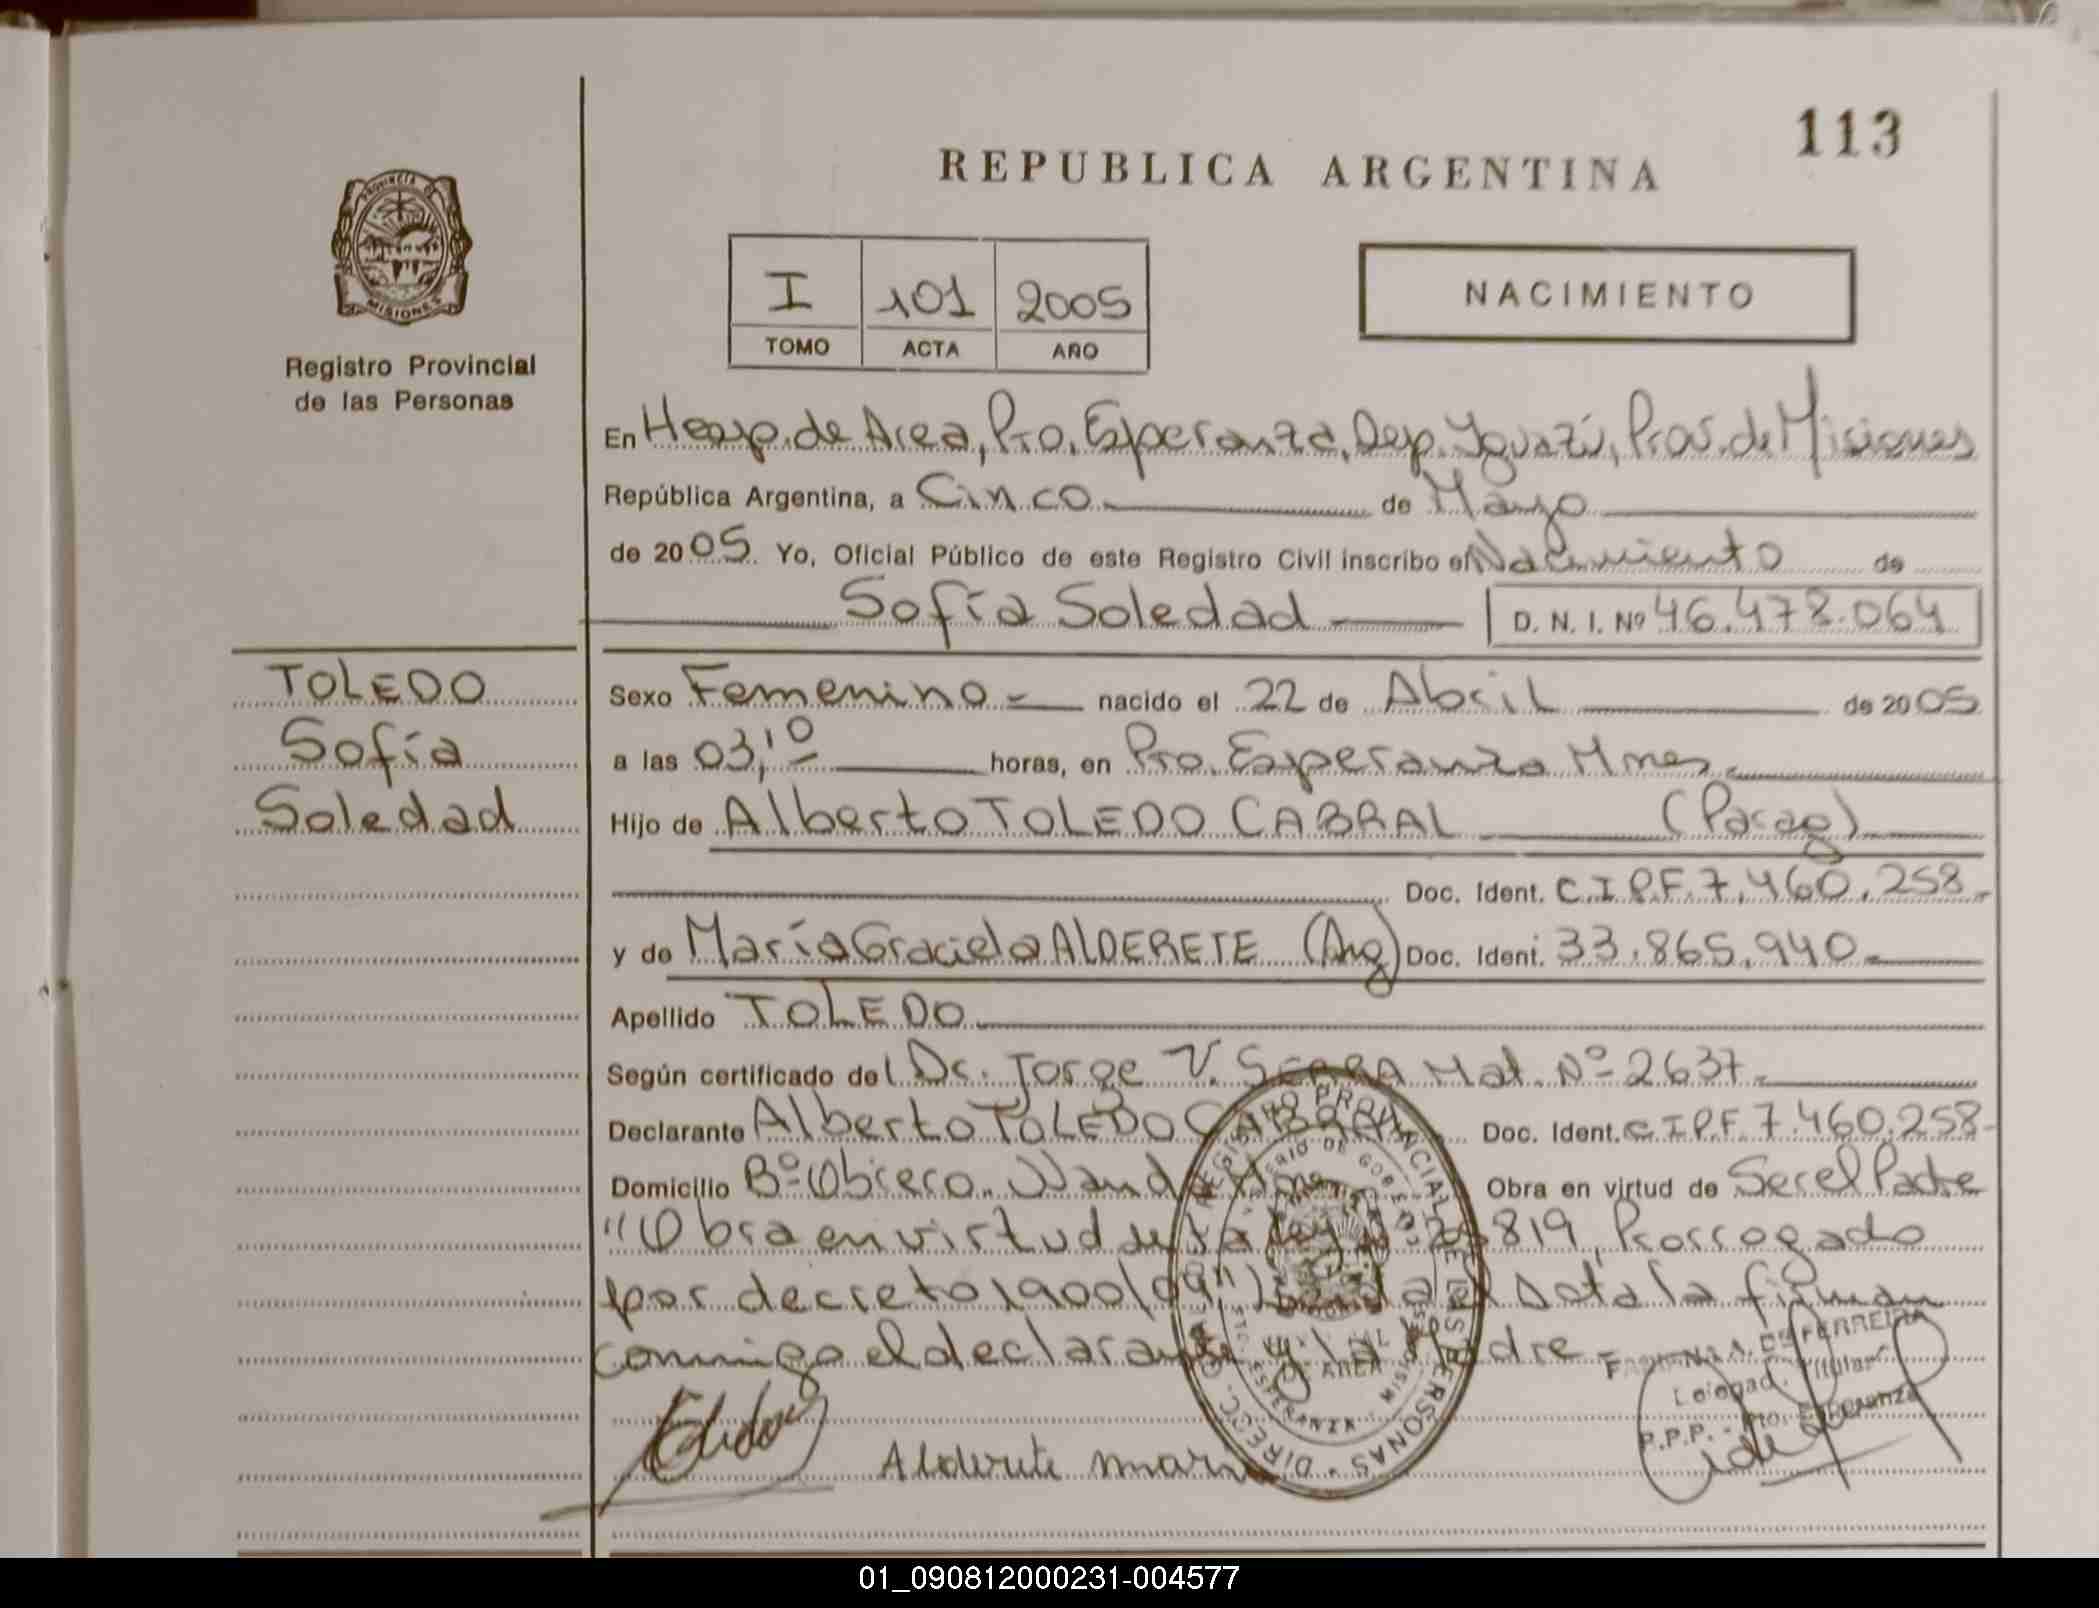 113
REPUBLICA ARGENTINA
PROVINCIA DE
MISIONES
Registro Provincial
de las Personas
I 101 2005
TOMO ACTA AÑO
NACIMIENTO
En Hosp. de Area, Pto. Esperanza, Dep. Iguazú, Prov. de Misiones
República Argentina, a Cinco de Mayo
de 2005. Yo, Oficial Público de este Registro Civil inscribo el Nacimiento de
Sofía Soledad D. N. I. Nº 46.478.064
TOLEDO
Sofía
Soledad
Sexo Femenino nacido el 22 de Abril de 2005
a las 03,10 horas, en Pto. Esperanza Mnes.
Hijo de Alberto TOLEDO CABRAL (Parag)
Doc. Ident. C.I.P.F. 7.460.258
y de María Graciela ALDERETE (Arg) Doc. Ident. 33.865.940
Apellido TOLEDO
Según certificado del Dr. Jorge V. SERRA Mat. Nº 2637
Declarante Alberto TOLEDO CABRAL Doc. Ident. C.I.P.F. 7.460.258
Domicilio Bº Obrero. Wanda Obra en virtud de Ser el Padre
"Obra en virtud de la ley 819, Prorrogado
por decreto 1900/04", Leida el Acta la firman
conmigo el declarante y la Madre
Alderete maria
DIRECC. REGISTRO PROVINCIAL DE LAS PERSONAS
ESPERANZA
DE FERREIRA
Titular
R.P.P. - Pto. Esperanza
01_090812000231-004577